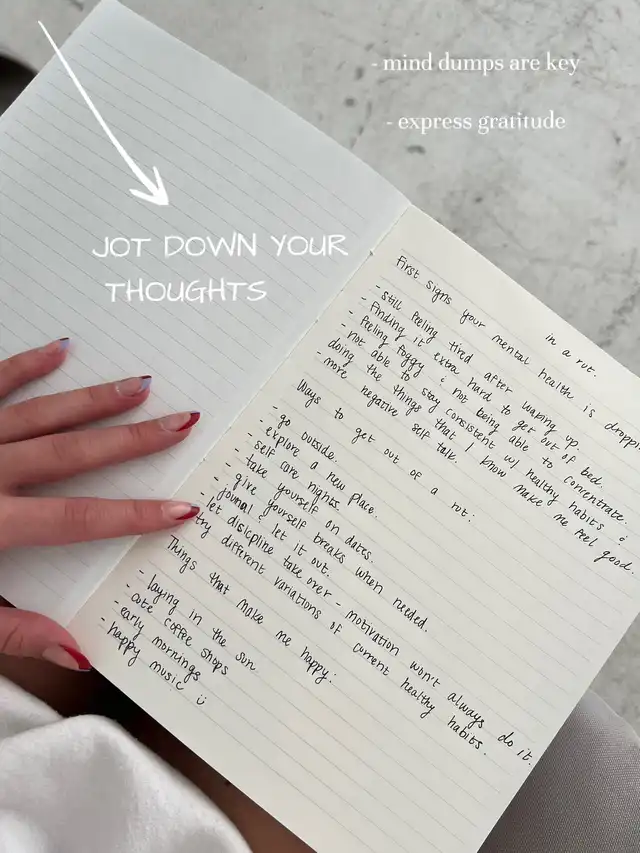 - mind dumps are key
- express gratitude
JOT DOWN YOUR
THOUGHTS
in a rut.
First signs your mental health is droppin
- still feeling tired after waking up
- finding it extra hard to get out of bed
- feeling foggy & not being able to concentrate.
- not able to stay consistent w/ healthy habits &
doing the things that I know make me feel good.
- more negative self talk.
Ways to get out of a rut:
- go outside.
- explore a new place.
- self care nights.
- take yourself on dates.
- give yourself breaks when needed.
- journal & let it out.
- let disicpline take over - motivation won't always do it.
- try different variations of current healthy habits.
Things that make me happy:
- laying in the sun
- cute coffee shops
- early mornings
- happy music ü